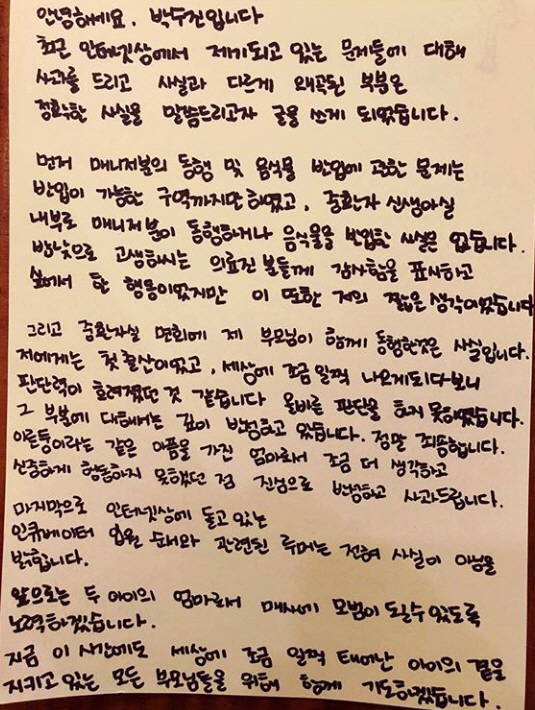 안녕하세요. 박수진입니다
최근 인터넷상에서 제기되고 있는 문제들에 대해
사과를 드리고 사실과 다르게 왜곡된 부분은
정확한 사실을 말씀드리고자 글을 쓰게 되었습니다.
먼저 매니저분의 동행 및 음식물 반입에 관한 문제는
반입이 가능한 구역까지만 하였고, 중환자 신생아실
내부로 매니저분이 동행하거나 음식물을 반입한 사실은 없습니다.
밤낮으로 고생하시는 의료진 분들께 감사함을 표시하고
싶어서 한 행동이었지만 이 또한 저의 짧은 생각이었습니다
그리고 중환자실 면회에 제 부모님이 함께 동행한것은 사실입니다.
저에게는 첫 출산이었고, 세상에 조금 일찍 나오게되다보니
판단력이 흐려졌던 것 같습니다 올바른 판단을 하지 못하였습니다.
그 부분에 대해서는 깊이 반성하고 있습니다. 정말 죄송합니다.
이른둥이라는 같은 아픔을 가진 엄마로서 조금 더 생각하고
신중하게 행동하지 못했던 점 진심으로 반성하고 사과드립니다.
마지막으로 인터넷상에 돌고 있는
인큐베이터 입원 순서와 관련된 루머는 전혀 사실이 아님을
밝힙니다.
앞으로는 두 아이의 엄마로서 매사에 모범이 되실수있도록
노력하겠습니다.
지금 이 시간에도 세상에 조금 일찍 태어난 아이의 곁을
지키고 있는 모든 부모님들을 위해 함께 기도하겠습니다.